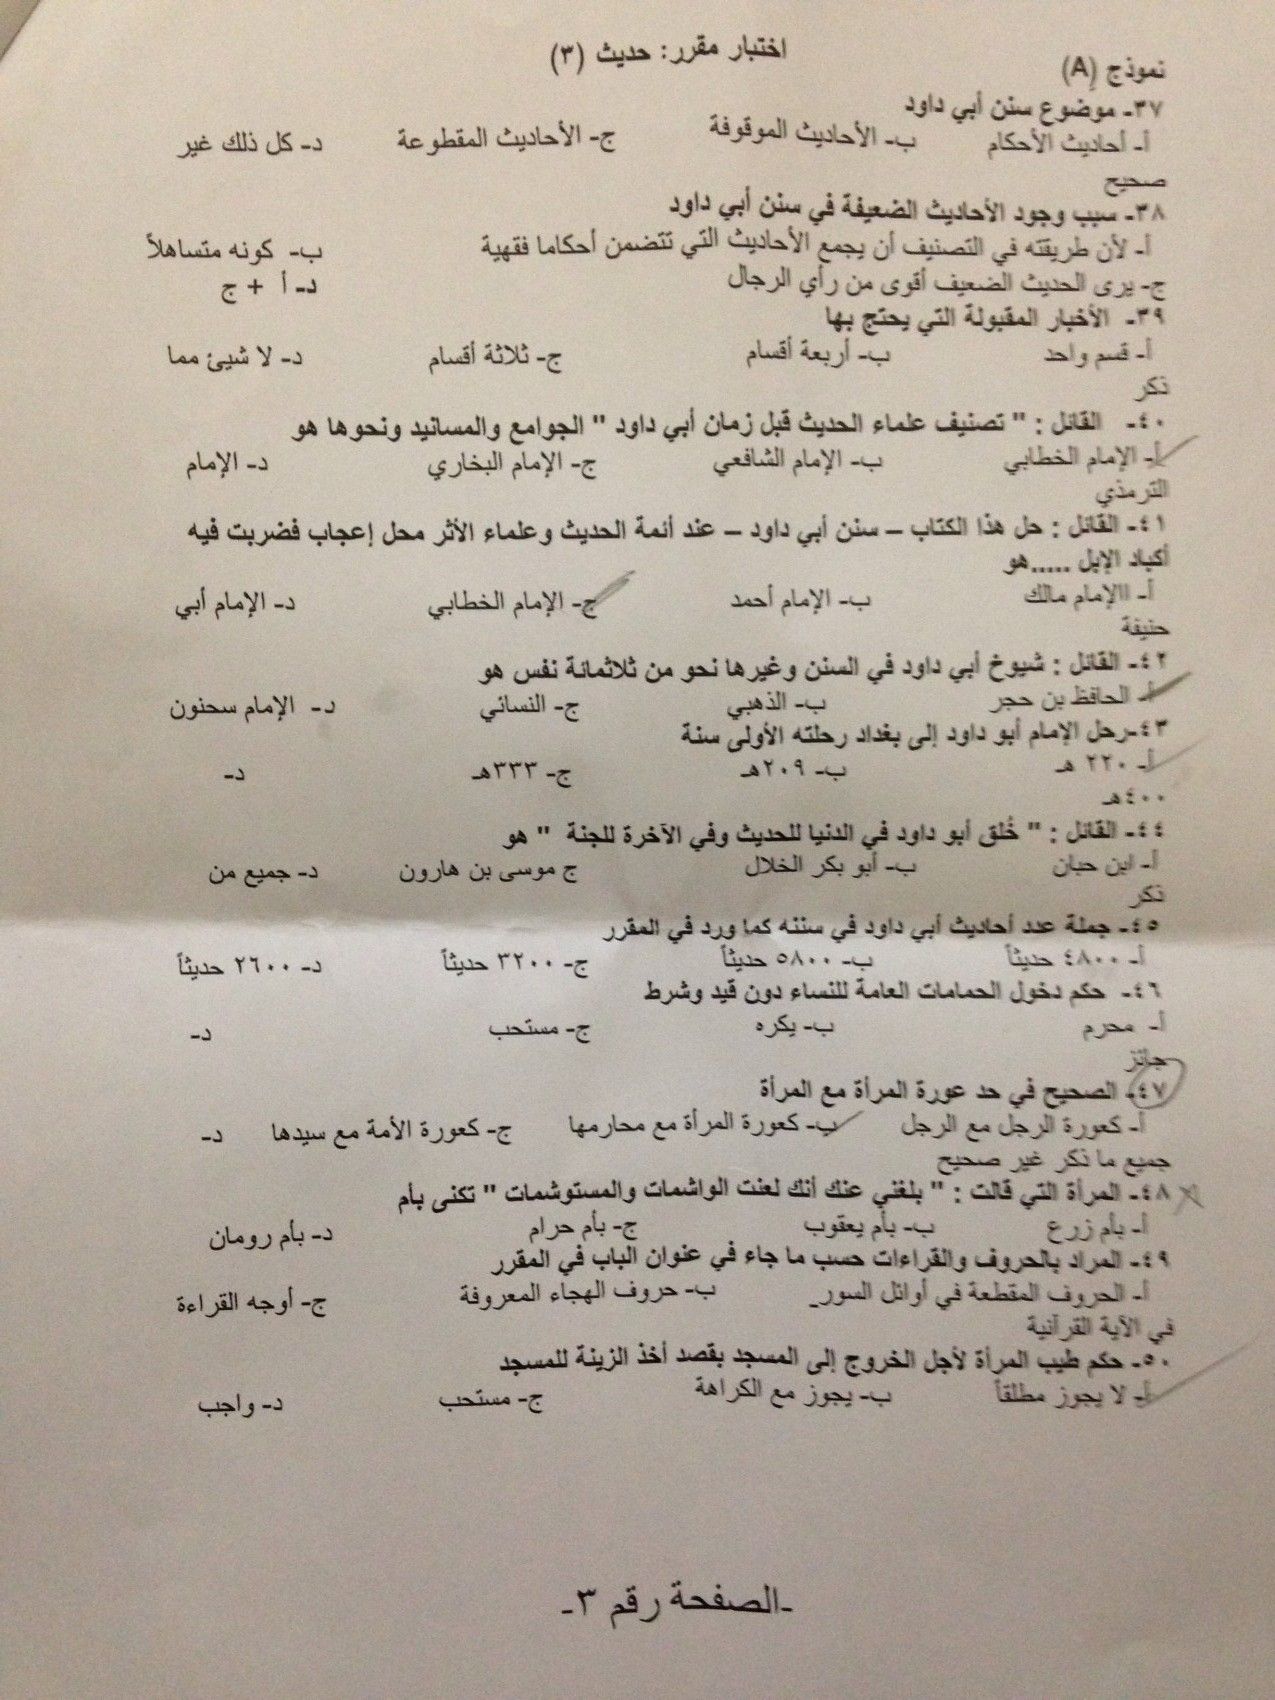 اختبار مقرر: حديث (٣)
نموذج (A)
٣٧- موضوع سنن أبي داود
أ- أحاديث الأحكام ب- الأحاديث الموقوفة ج- الأحاديث المقطوعة د- كل ذلك غير
صحيح
٣٨- سبب وجود الأحاديث الضعيفة في سنن أبي داود
أ- لأن طريقته في التصنيف أن يجمع الأحاديث التي تتضمن أحكاما فقهية ب- كونه متساهلاً
ج- يرى الحديث الضعيف أقوى من رأي الرجال د- أ + ج
٣٩- الأخبار المقبولة التي يحتج بها
أ- قسم واحد ب- أربعة أقسام ج- ثلاثة أقسام د- لا شيئ مما
ذكر
٤٠- القائل : " تصنيف علماء الحديث قبل زمان أبي داود " الجوامع والمسانيد ونحوها هو
أ- الإمام الخطابي ب- الإمام الشافعي ج- الإمام البخاري د- الإمام
الترمذي
٤١- القائل : حل هذا الكتاب – سنن أبي داود – عند أئمة الحديث وعلماء الأثر محل إعجاب فضربت فيه
أكباد الإبل .....هو
أ- االإمام مالك ب- الإمام أحمد ج- الإمام الخطابي د- الإمام أبي
حنيفة
٤٢- القائل : شيوخ أبي داود في السنن وغيرها نحو من ثلاثمائة نفس هو
أ- الحافظ بن حجر ب- الذهبي ج- النسائي د- الإمام سحنون
٤٣-رحل الإمام أبو داود إلى بغداد رحلته الأولى سنة
أ- ٢٢٠ هـ ب- ٢٠٩هـ ج- ٣٣٣هـ د-
٤٠٠هـ
٤٤- القائل : " خُلق أبو داود في الدنيا للحديث وفي الآخرة للجنة " هو
أ- ابن حبان ب- أبو بكر الخلال ج موسى بن هارون د- جميع من
ذكر
٤٥- جملة عدد أحاديث أبي داود في سننه كما ورد في المقرر
أ- ٤٨٠٠ حديثاً ب- ٥٨٠٠ حديثاً ج- ٣٢٠٠ حديثاً د- ٢٦٠٠ حديثاً
٤٦- حكم دخول الحمامات العامة للنساء دون قيد وشرط
أ- محرم ب- يكره ج- مستحب د-
جائز
٤٧- الصحيح في حد عورة المرأة مع المرأة
أ- كعورة الرجل مع الرجل ب- كعورة المرأة مع محارمها ج- كعورة الأمة مع سيدها د-
جميع ما ذكر غير صحيح
٤٨- المرأة التي قالت : " بلغني عنك أنك لعنت الواشمات والمستوشمات " تكنى بأم
أ- بأم زرع ب- بأم يعقوب ج- بأم حرام د- بأم رومان
٤٩- المراد بالحروف والقراءات حسب ما جاء في عنوان الباب في المقرر
أ- الحروف المقطعة في أوائل السور_ ب- حروف الهجاء المعروفة ج- أوجه القراءة
في الآية القرآنية
٥٠- حكم طيب المرأة لأجل الخروج إلى المسجد بقصد أخذ الزينة للمسجد
أ- لا يجوز مطلقاً ب- يجوز مع الكراهة ج- مستحب د- واجب
-الصفحة رقم ٣-